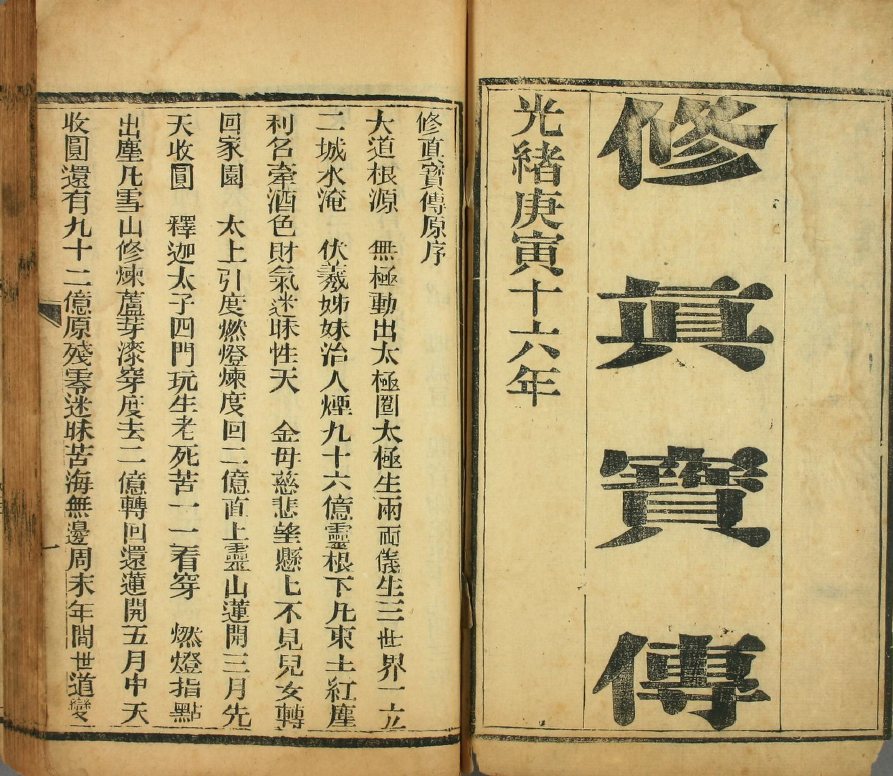 修真寳傳
光緒庚寅十六年
修真寳傳原序
大道根源 無極動出太極圈太極生兩而儀生三世界一立
二城水淹 伏羲姊妹治人煙九十六億靈根下凡東土紅塵
利名牽酒色財氣迷昧性天 金母慈悲望懸上不見兒女轉
回家園 太上引度燃燈煉度回二億直上靈山蓮開三月先
天收圓 釋迦太子四門玩生老死苦一一看穿 燃燈指點
出塵凡雪山修煉蘆芽漆穿度去二億轉回還蓮開五月中天
收圓還有九十二億原殘零迷昧苦海無邊周末年間世道變
一